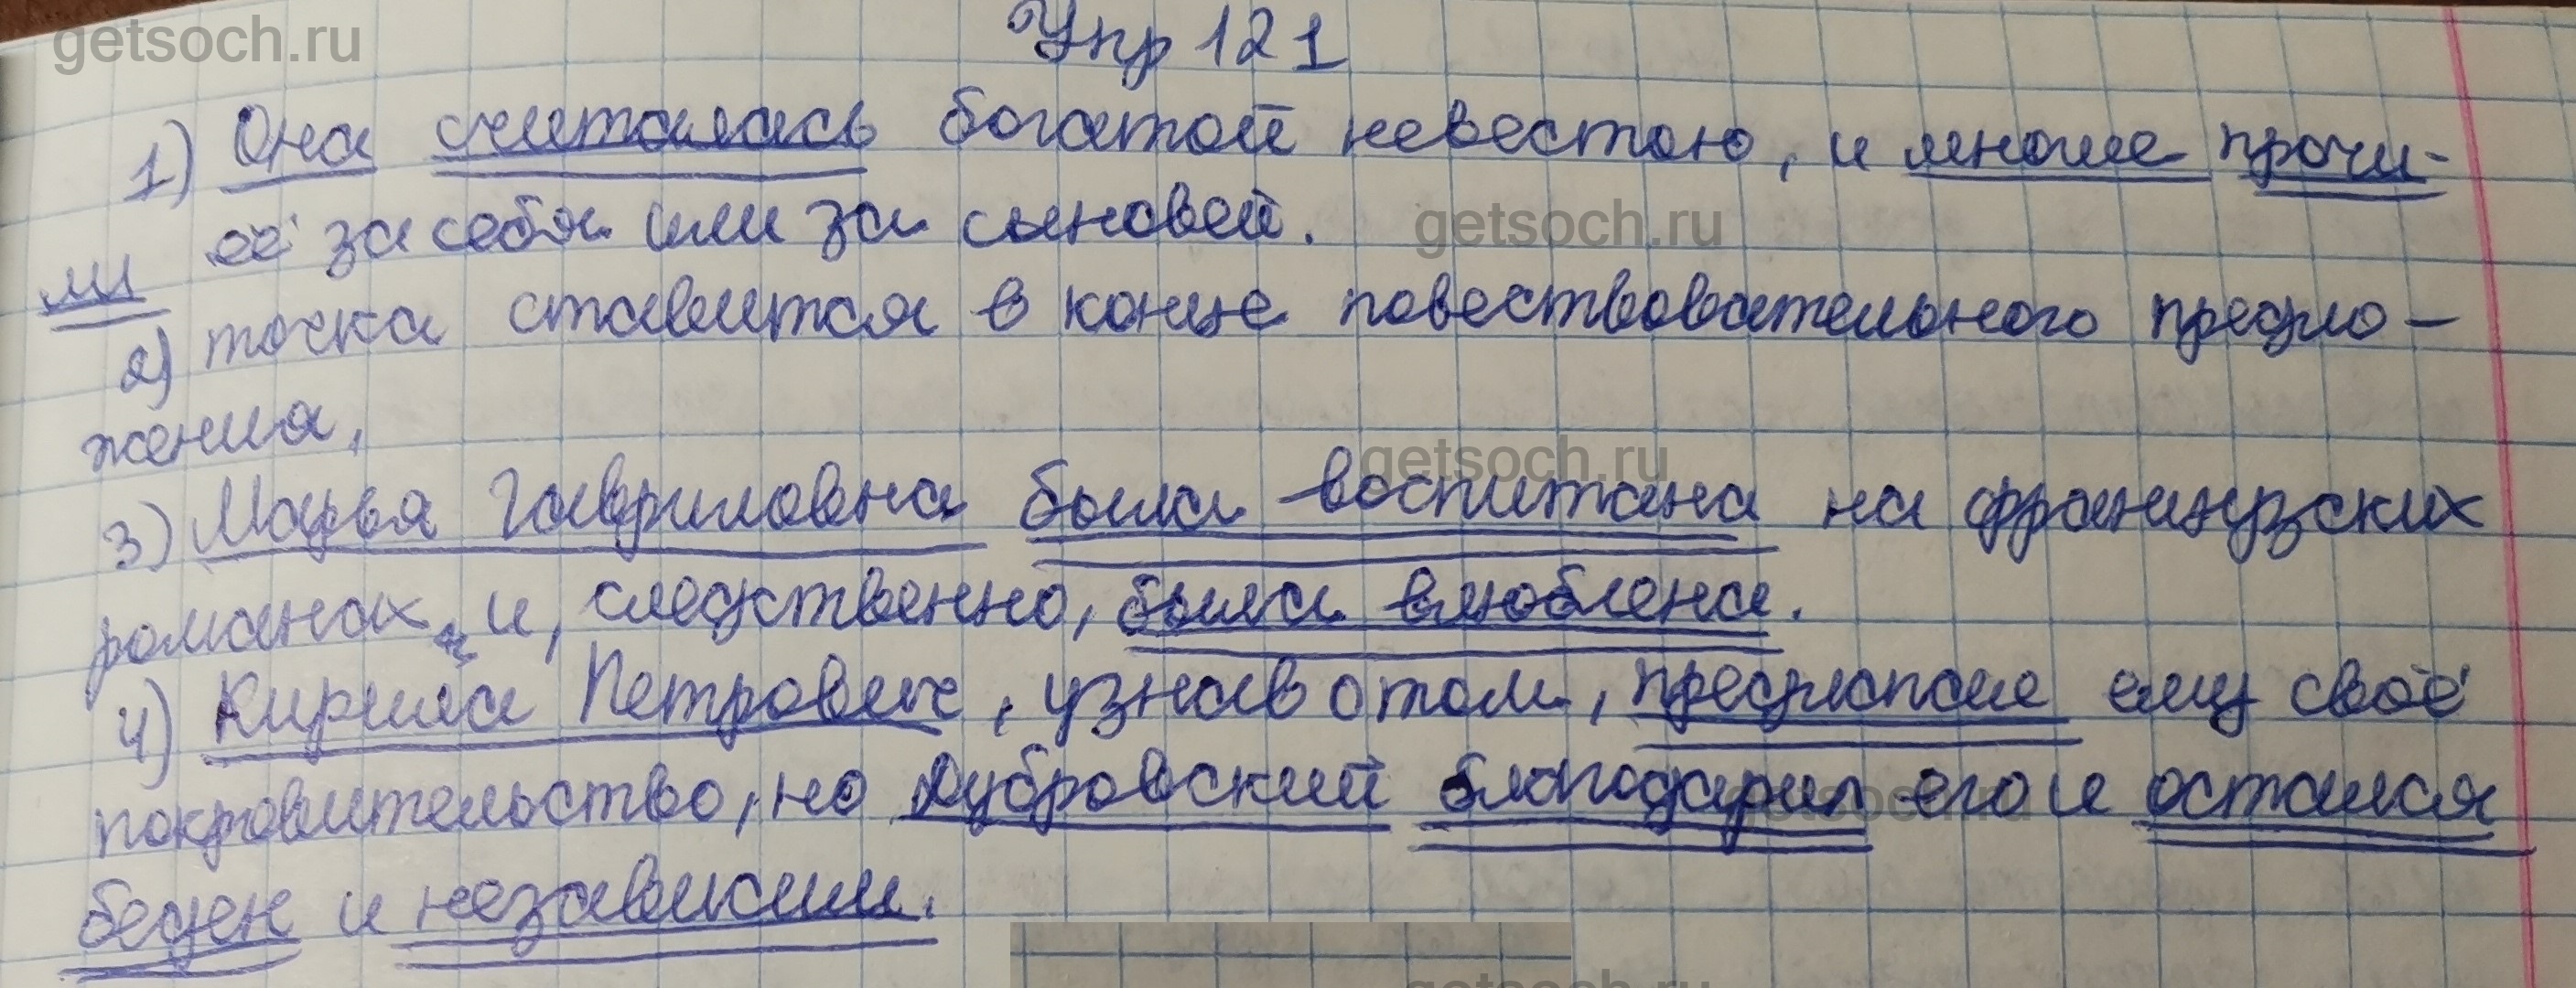 getsoch.ru
Упр 121
1) Она считалась богатой невестою, и многие прочи-
ли её за себя или за сыновей.
getsoch.ru
2) точка ставится в конце повествовательного предло-
жения.
getsoch.ru
3) Марья Гавриловна была воспитана на французских
романах и, следственно, была влюблена.
4) Кирила Петрович, узнав о том, предлагал ему своё
покровительство, но Дубровский благодарил его и остался
getsoch.ru
беден и независим.
getsoch.ru